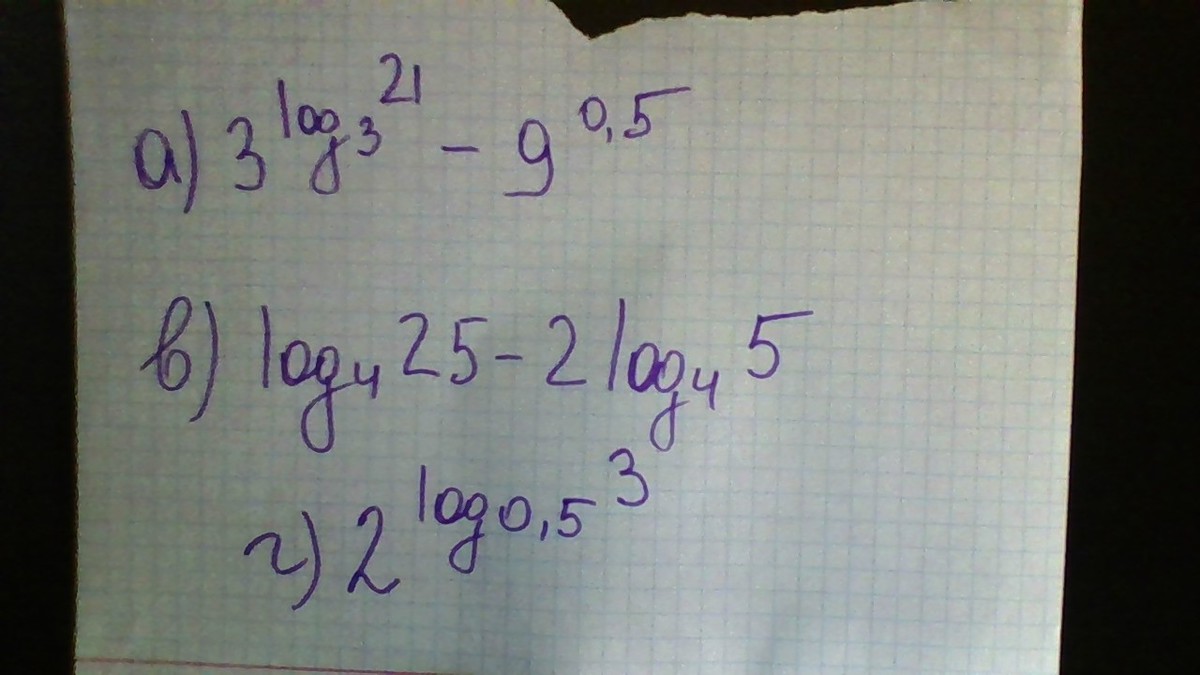 а) 3^{log_3 21} - 9^{0,5}
в) log_4 25 - 2 log_4 5
г) 2^{log_{0,5} 3}